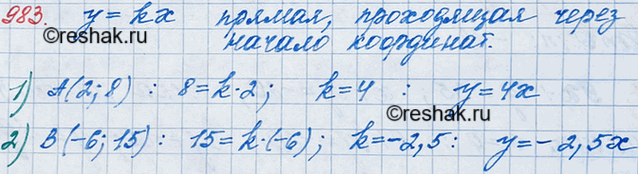 983. y = kx прямая, проходящая через
©reshak.ru
начало координат.
1) A(2; 8) : 8 = k·2; k = 4 : y = 4x
©reshak.ru
2) B(-6; 15) : 15 = k·(-6); k = -2,5 : y = -2,5x